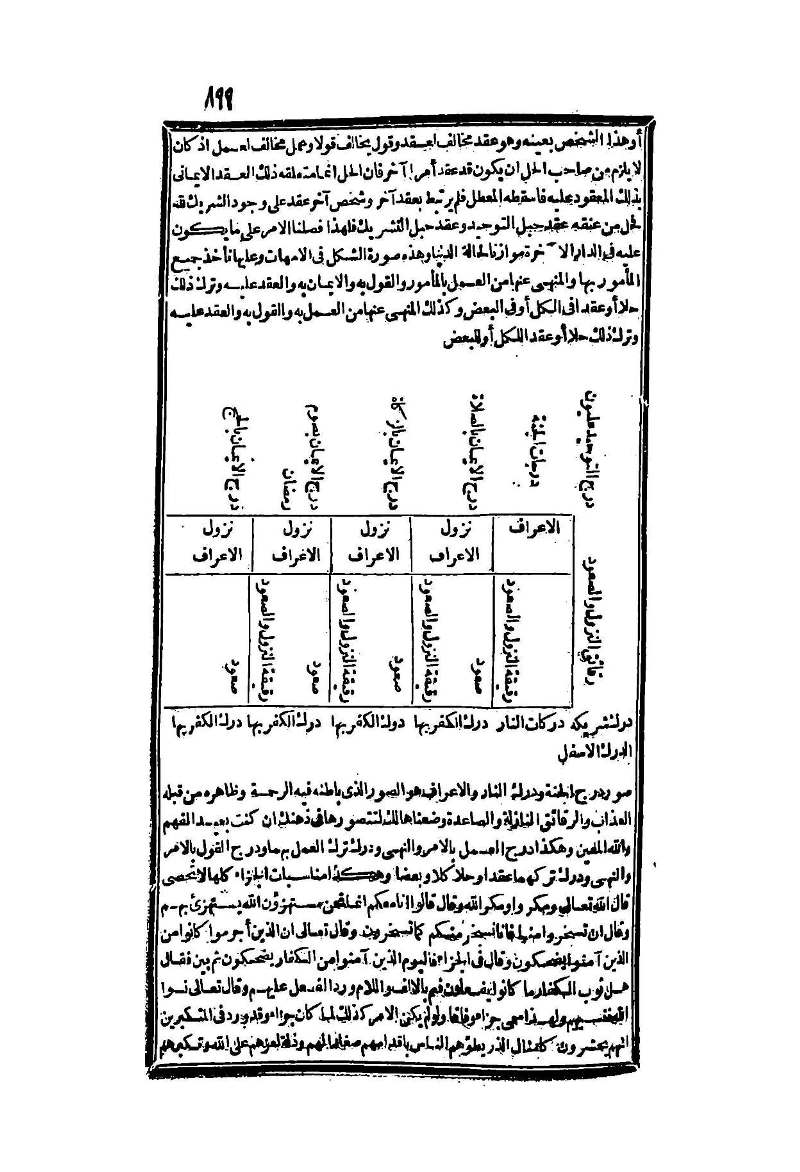 ٨٩٩
أو هذا الشخص بعينه وهو عقد مخالف لعقد وقول يخالف قولا وعمل مخالف لعمل اذ كان
لا يلزم من صاحب الحل ان يكون قد عقد أمرا آخر فان الحل انما متعلقه ذلك العقد الايمانى
بذلك المعقود عليه فاسقطه المعطل فلم يرتبط بعقد آخر وشخص آخر عقد على وجود الشريك قد
حل من عنقه عقد حبل التوحيد وعقد حبل التشريك فلهذا فصلنا الامر على ما يكون
عليه فى الدار الآخرة موازنا لحالة الدنيا وهذه صورة الشكل فى الامهات وعليها تأخذ جميع
المأمور بها والمنهى عنها من العمل بالمأمور والقول به والايمان به والعقد عليه وترك ذلك
حلا أو عقدا فى الكل أو فى البعض وكذلك المنهى عنها من العمل به والقول به والعقد عليه
وترك ذلك حلا أو عقدا للكل أو للبعض
درج التوحيد عليون
درجات الجنة
درج الايمان بالصلاة
درج الايمان بالزكاة
درج الايمان بصوم
رمضان
درج الايمان بالحج
رقائق النزول والصعود
الاعراف
نزول
الاعراف
نزول
الاعراف
نزول
الاعراف
نزول
الاعراف
رقيقة النزول والصعود
صعود
رقيقة النزول والصعود
صعود
رقيقة النزول والصعود
صعود
رقيقة النزول والصعود
صعود
درك شريكه دركات النار درك الكفر بها درك الكفر بها درك الكفر بها درك الكفر بها
الدرك الاسفل
صور درج الجنة ودرك النار والاعراف هو السور الذى باطنه فيه الرحمة وظاهره من قبله
العذاب والرقائق النازلة والصاعدة وضعناها لك لتتصورها فى ذهنك ان كنت بعيد الفهم
والله المعين وهكذا درج العمل بالامر والنهى ودرك ترك العمل بهما ودرج القول بالامر
والنهى ودرك تركهما عقدا وحلا كلا وبعضا وهكذا مناسبات الجزاء كلها لا تحصى
قال الله تعالى ومكروا ومكر الله وقال قالوا انا معكم انما نحن مستهزؤن الله يستهزئ بهم
وقال ان تسخروا منا فانا نسخر منكم كما تسخرون وقال تعالى ان الذين أجرموا كانوا من
الذين آمنوا يضحكون وقال فى الجزاء فاليوم الذين آمنوا من الكفار يضحكون ثم بين فقال
هل ثوب الكفار ما كانوا يفعلون فهم بالالف واللام ورد الفعل عليهم وقال تعالى نسوا
الله فنسيهم ولهذا سمى جزاء وفاقا ولو لم يكن الامر كذلك لما كان جزاء وقد ورد فى المتكبرين
انهم يحشرون كامثال الذر يطؤهم الناس باقدامهم صغارا لهم وذلة لعزهم على الله وتكبرهم